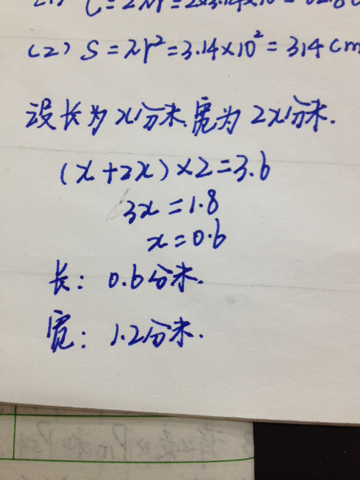 (2) S=πr²=3.14×10²=314cm
设长为x分米,宽为2x分米.
(x+2x)×2=3.6
3x=1.8
x=0.6
长: 0.6分米.
宽: 1.2分米.